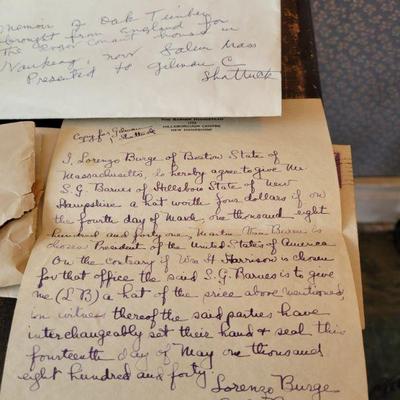 Memoir of Oak Timber
brought from England for
The Roger Conant house in
Naukeag, now Salem Mass
Presented to Gilman C
Shattuck
THE BARNES HOMESTEAD
HILLSBOROUGH CENTRE
NEW HAMPSHIRE
Copy for Gilman
Shattuck
I, Lorenzo Burge of Boston State of
Massachusetts, do hereby agree to give Mr
S.G. Barnes of Hillsboro State of New
Hampshire a hat worth four dollars if on
the fourth day of March, one thousand eight
hundred and forty one, Martin Van Buren is
chosen President of the United States of America
On the contrary if Wm H Harrison is chosen
for that office the said S.G. Barnes is to give
me (L B) a hat of the price above mentioned,
in witness thereof the said parties have
interchangeably set their hand & seal this
fourteenth day of May one thousand
eight hundred and forty.
Lorenzo Burge